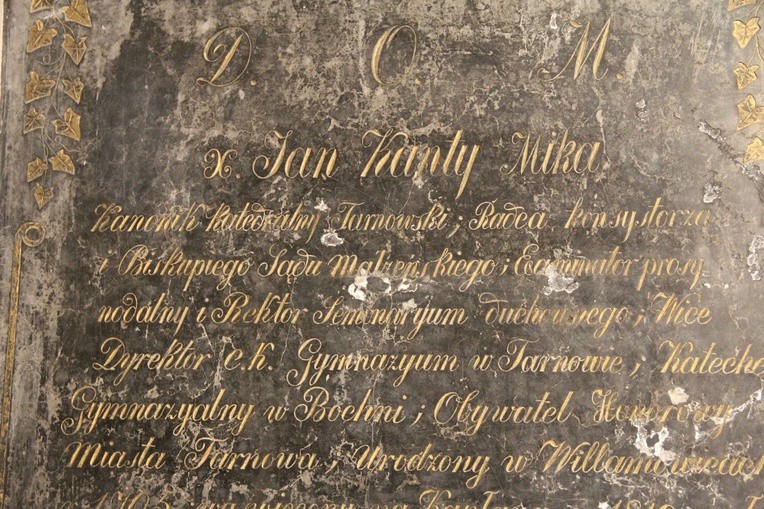 D. O. M.
x. Jan Kanty Mika
Kanonik katedralny Tarnowski; Radca konsystorza
i Biskupiego Sądu Małżeńskiego; Examinator prosy
nodalny i Rektor Seminaryum duchownego; Wice
Dyrektor c.k. Gymnazyum w Tarnowie; Kateche
Gymnazyalny w Bochni; Obywatel Honorowy
Miasta Tarnowa; Urodzony w Willamowicach